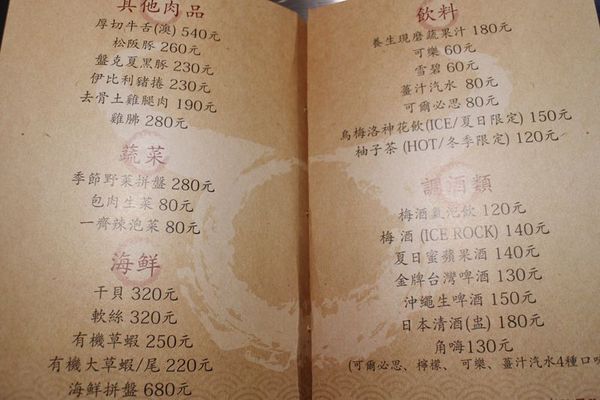 其他肉品
厚切牛舌(澳) 540元
松阪豚 260元
盤克夏黑豚 230元
伊比利豬捲 230元
去骨土雞腿肉 190元
雞腓 280元
蔬菜
季節野菜拼盤 280元
包肉生菜 80元
一齊辣泡菜 80元
海鮮
干貝 320元
軟絲 320元
有機草蝦 250元
有機大草蝦/尾 220元
海鮮拼盤 680元
飲料
養生現磨蔬果汁 180元
可樂 60元
雪碧 60元
薑汁汽水 80元
可爾必思 80元
烏梅洛神花飲(ICE/夏日限定) 150元
柚子茶 (HOT/冬季限定) 120元
調酒類
梅酒氣泡飲 120元
梅酒 (ICE ROCK) 140元
夏日蜜蘋果酒 140元
金牌台灣啤酒 130元
沖繩生啤酒 150元
日本清酒(盅) 180元
角嗨130元
(可爾必思、檸檬、可樂、薑汁汽水4種口